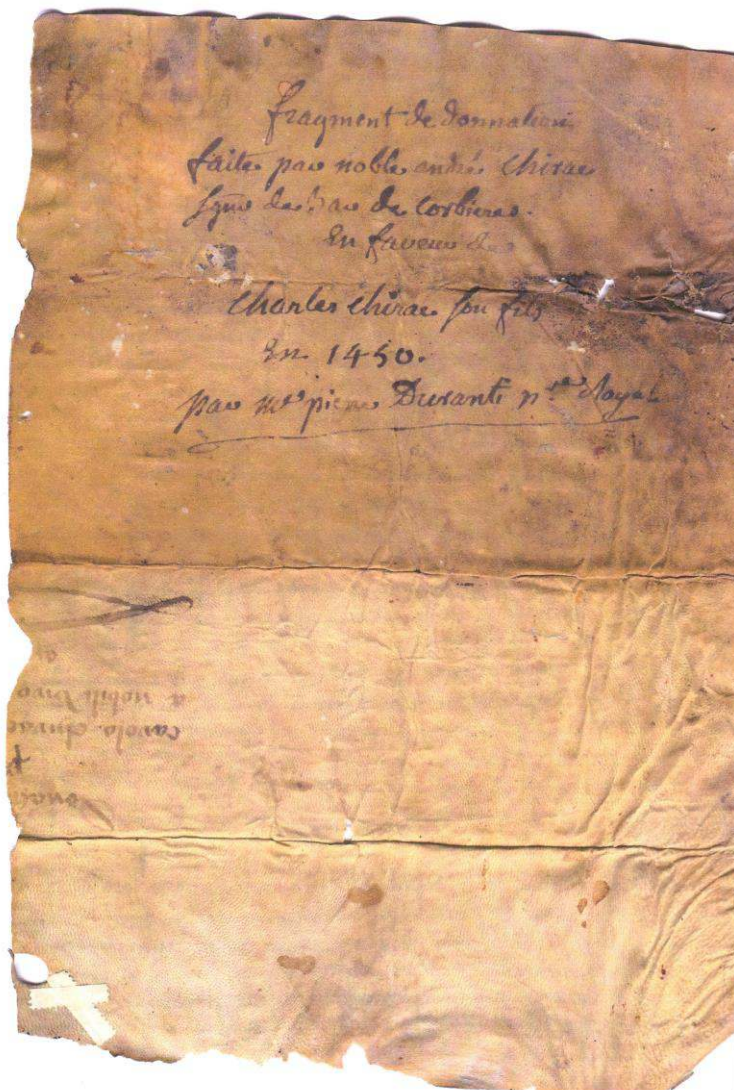 fragment de donnation
faite par noble andré Chirac
sgnr de de Corbieres.
En faveur de
Charles chirac son fils
En 1450.
par me pierre Duranti nre Royal
a nobili viro
carolo chirac